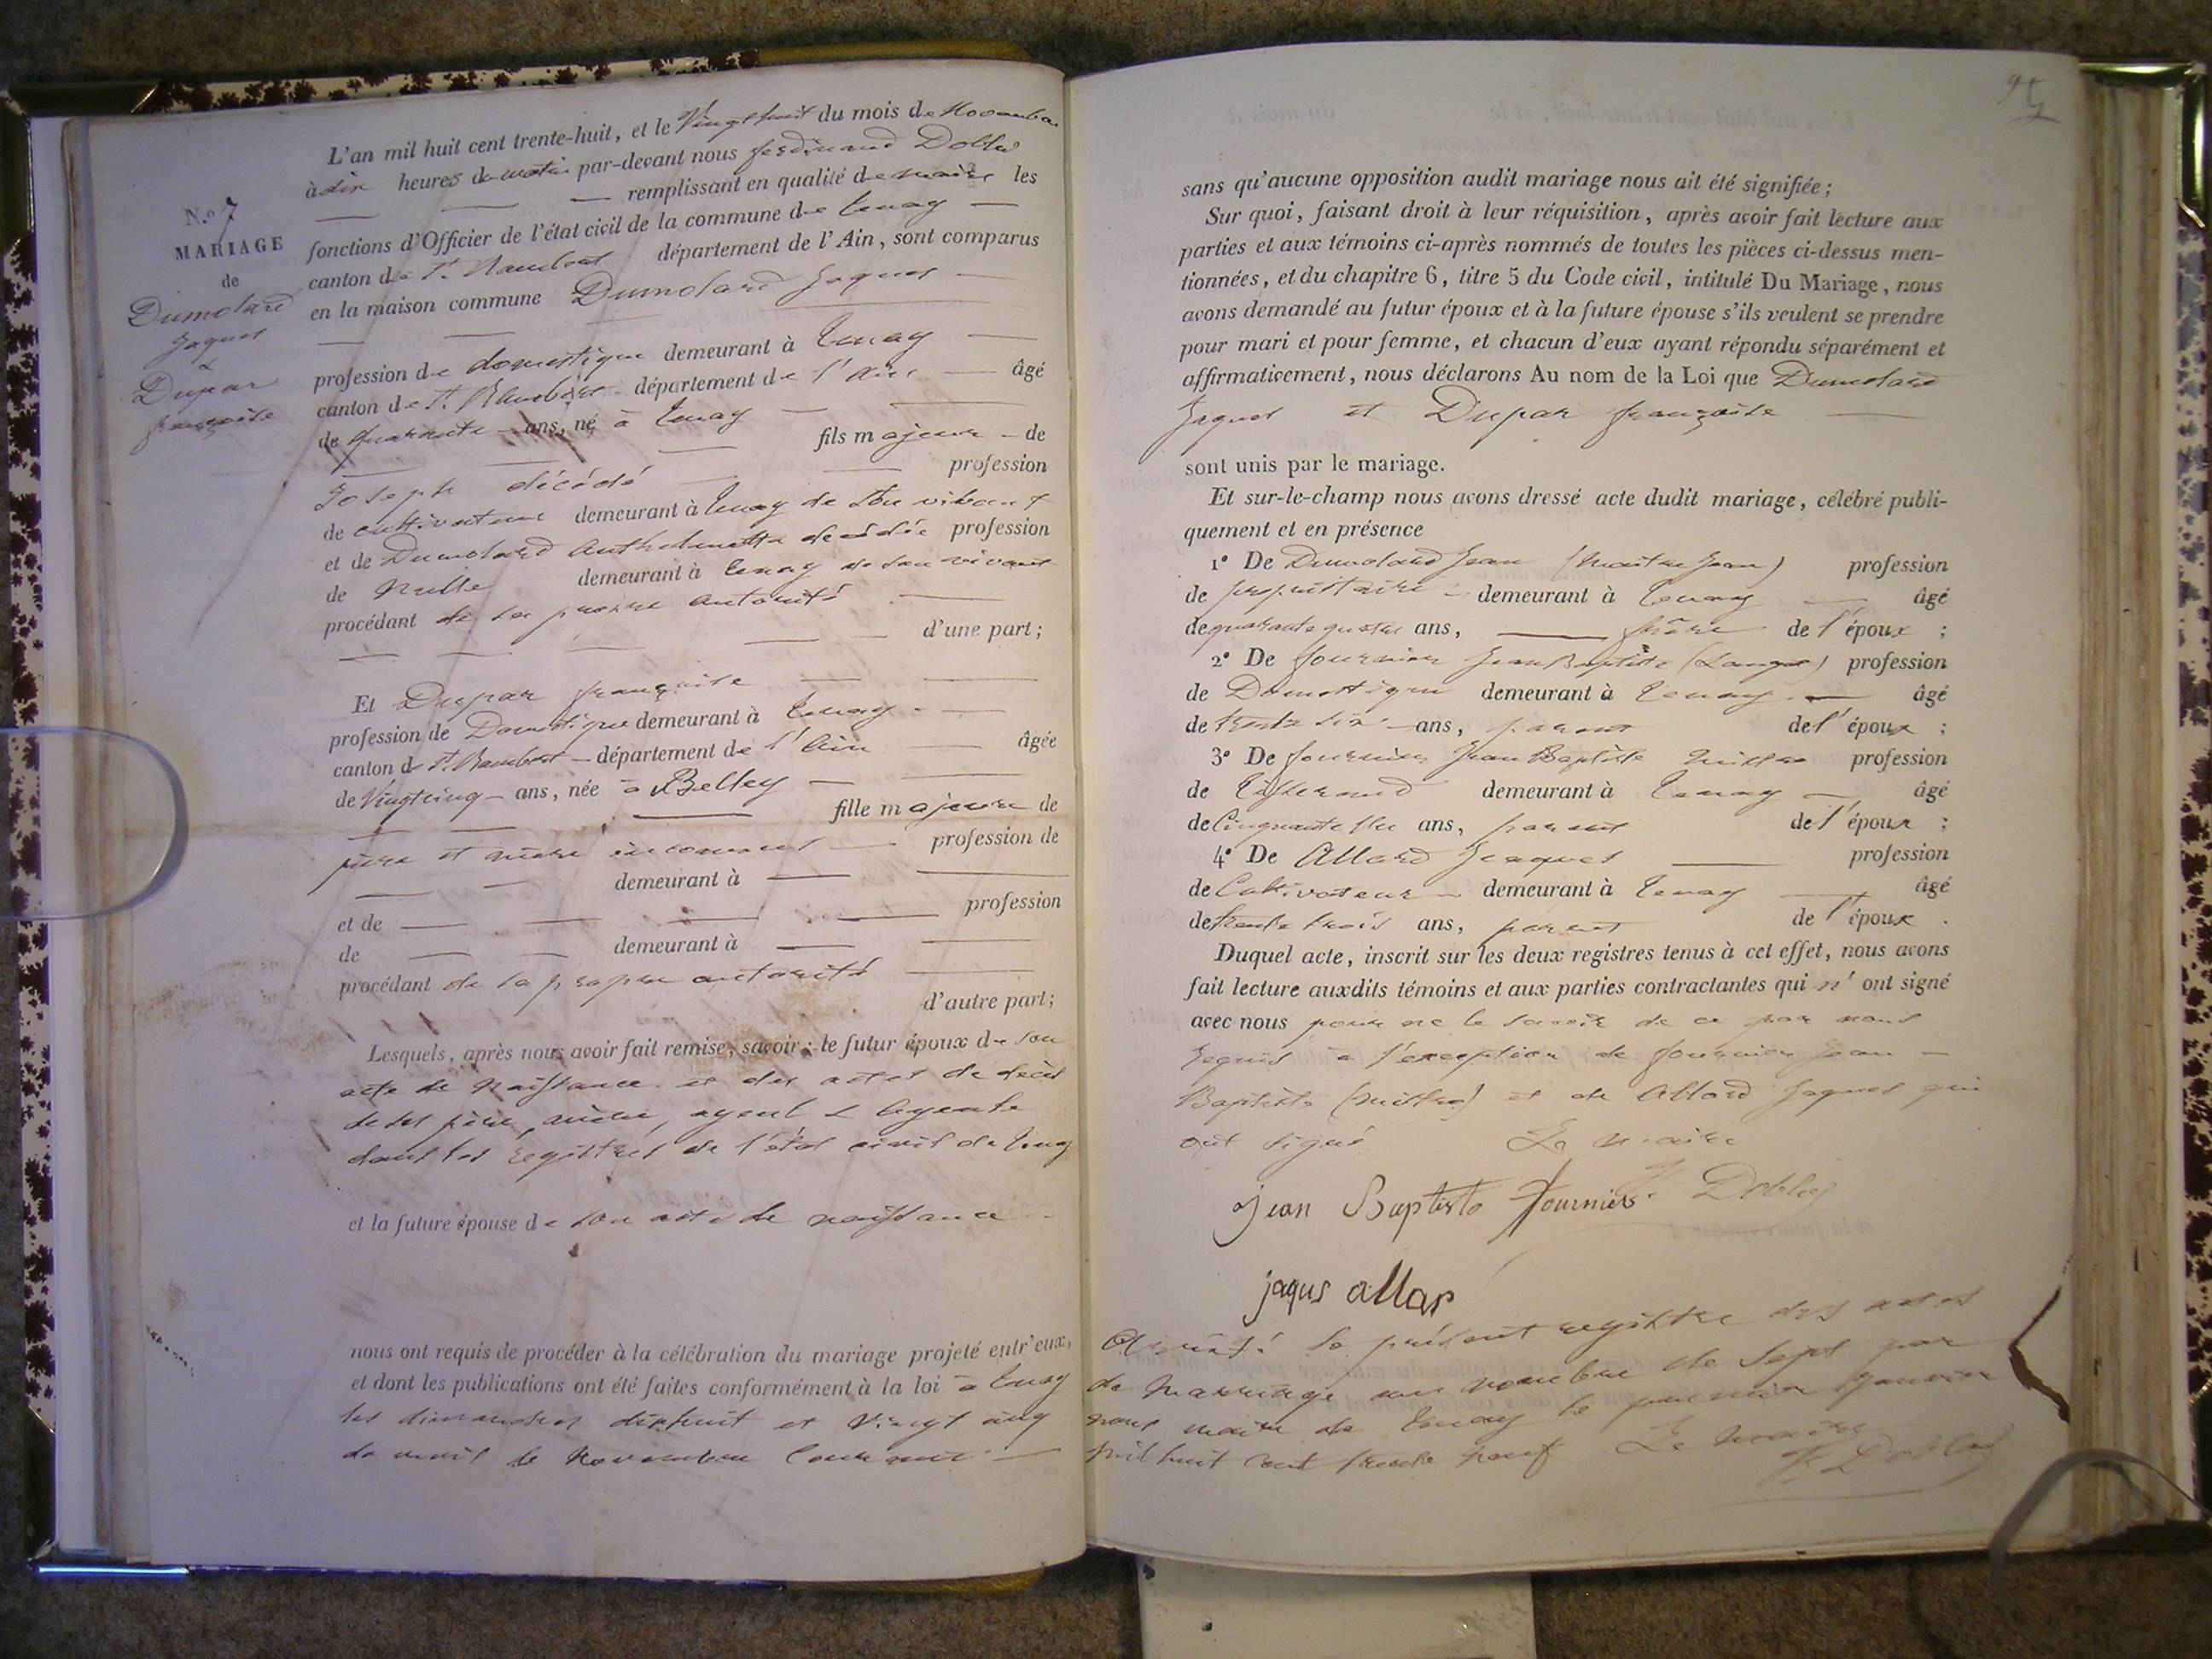 N.º 7
MARIAGE
de
Dumolard
Jaques
&
Dupar
françoise
L'an mil huit cent trente-huit, et le Vingt huit du mois de Novembre
à dix heures du matin par-devant nous ferdinand Dobler
remplissant en qualité de maire les
fonctions d'Officier de l'état civil de la commune de tenay
canton de St. Rambert département de l'Ain, sont comparus
en la maison commune Dumolard Jaques
profession de domestique demeurant à tenay
canton de St. Rambert département de l'ain âgé
de quarante ans, né à tenay
fils majeur de
Joseph décédé profession
de cultivateur demeurant à tenay de son vivant
et de Dumolard Anthelmette décédée profession
de Nulle demeurant à tenay de son vivant
procédant de sa propre autorité
d'une part;
Et Dupar françoise
profession de Domestique demeurant à tenay
canton de St. Rambert département de l'ain âgée
de Vingt cinq ans, née à Belley
fille majeure de
père et mère inconnus profession de
demeurant à
et de profession
de demeurant à
procédant de sa propre autorité
d'autre part;
Lesquels, après nous avoir fait remise, savoir: le futur époux de son
acte de naissance et des actes de décès
de ses père, mère, ayeul & ayeule
dans les registres de l'état civil de tenay
et la future épouse de son acte de naissance
nous ont requis de procéder à la célébration du mariage projeté entr'eux,
et dont les publications ont été faites conformément à la loi à tenay
les dimanches dixhuit et Vingt cinq
du mois de Novembre Courant
sans qu'aucune opposition audit mariage nous ait été signifiée;
Sur quoi, faisant droit à leur réquisition, après avoir fait lecture aux
parties et aux témoins ci-après nommés de toutes les pièces ci-dessus men-
tionnées, et du chapitre 6, titre 5 du Code civil, intitulé Du Mariage, nous
avons demandé au futur époux et à la future épouse s'ils veulent se prendre
pour mari et pour femme, et chacun d'eux ayant répondu séparément et
affirmativement, nous déclarons Au nom de la Loi que Dumolard
Jaques et Dupar françoise
sont unis par le mariage.
Et sur-le-champ nous avons dressé acte dudit mariage, célébré publi-
quement et en présence
1º De Dumolard Jean (Maitre Jean) profession
de propriétaire demeurant à tenay âgé
de quarante quatre ans, frère de l'époux ;
2º De fournier Jean Baptiste profession
de Domestique demeurant à tenay âgé
de trente six ans, parent de l'époux ;
3º De fournier Jean Baptiste profession
de tisserand demeurant à tenay âgé
de Cinquante ans, parent de l'époux ;
4º De Allard Jacques profession
de Cultivateur demeurant à tenay âgé
de trente trois ans, parent de l'époux .
Duquel acte, inscrit sur les deux registres tenus à cet effet, nous avons
fait lecture auxdits témoins et aux parties contractantes qui n' ont signé
avec nous pour ne le savoir de ce par nous
requis à l'exception de fournier Jean
Baptiste et de Allard Jaques qui
ont signé Le maire
jean Baptiste fournier F Dobler
jaqus allar
Arrêté le présent registre des actes
de mariage au nombre de Sept par
nous maire de tenay le premier janvier
mil huit cent trente neuf Le maire
F Dobler